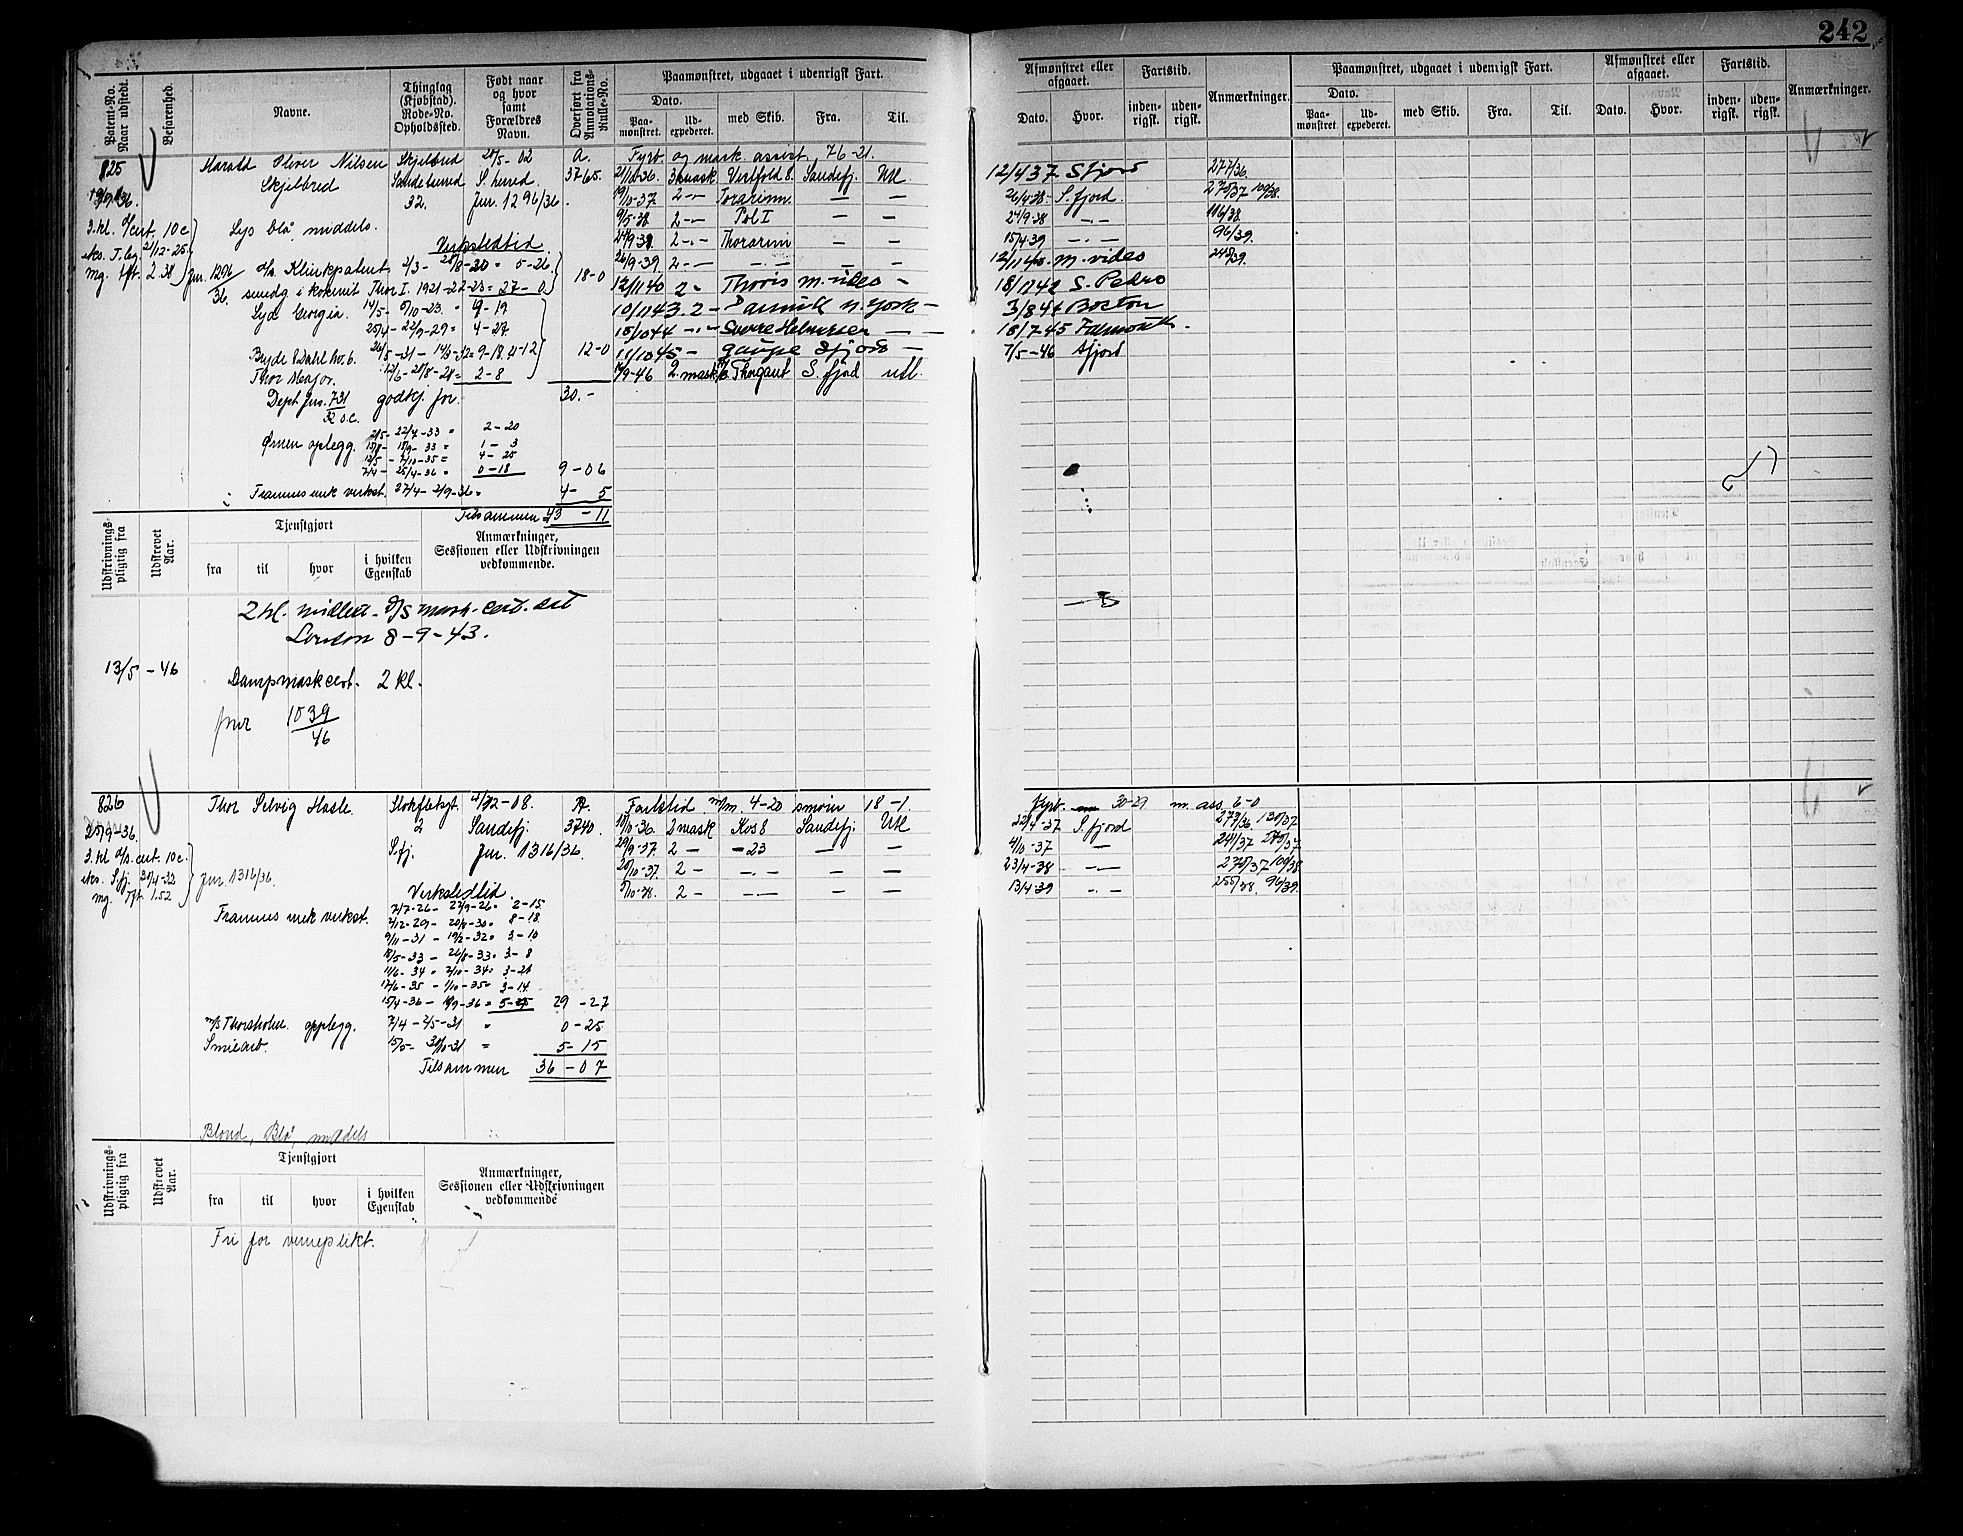 242
Patent-No. Naar udstedt.
Bejarenhed.
Navne.
Thinglag (Kjøbstad). Rode-No. Opholdssted.
Født naar og hvor samt Forældres Navn.
Overført fra Annotations-Rulle-No.
Paamønstret, udgaaet i udenrigsk Fart.
Dato.
Paa-mønstret.
Ud-expederet.
med Skib.
Fra.
Til.
Afmønstret eller afgaaet.
Dato.
Hvor.
Fartstid.
inden-rigsk.
uden-rigsk.
Anmærkninger.
Paamønstret, udgaaet i udenrigsk Fart.
Dato.
Paa-mønstret.
Ud-expederet.
med Skib.
Fra.
Til.
Afmønstret eller afgaaet.
Dato.
Hvor.
Fartstid.
inden-rigsk.
uden-rigsk.
Anmærkninger.
825
Harald Oliver Nilsen Skjelbred
Skjelbred Sandeherred 32.
20/5-02 S. herred Jnr. 1296/36
A. 3765.
3.kl. d/cert. 10c
eks. T.bg. 21/12-25
mg. fpt. 2.38
Jnr. 1296/36.
Lys blå middels.
Verkstedtid
2/3- 28/8-20 = 5-26
Thor I. 1921-22-23 = 27-0
18-0
Syd Georgia. 14/5- 5/10-23. = 9-19
25/4-22/9-29 = 4-27
Bryde & Dahl hv.b.
12-0
Thor Major. 2-8
Dept. jnr. 731/32 o.c. godkj. for. 30.-
opplegg. 2/5- 22/7-33 = 2-20
1- 3
4- 25
7/4- 25/4-36 = 0-18
9-06
Framnes mek verkst. 27/4- 2/9-36 = 4- 5
Tilsammen 43-11
Fyrb. og mask. assist. 76-21.
21/10-36. 3 mask Vestfold 8. Sandefj. Utl
19/10-37 2 — Thorarinn. — —
9/5-38 2 — Pol I — —
24/9-38. 2 — Thorarinn — —
26/9-39. 2 — — — —
12/11 40 2 - Thoris M. video -
10/11 43 2 - N. York -
15/10 44 - Sverre Helmersen — —
11/10 45 - Gaupe Sfjord —
19/9-46 2. mask Thorgaut S. fjord utl.
12/4 37 Sfjord 277/36
26/4-38- S. fjord. 275/37 100/38.
24/9-38 — 106/38.
15/4-39 — 96/39.
12/11 40. M. video 245/39.
18/11 42 S. Pedro
3/8 44 Boston
18/7 45 Falmouth.
7/5-46 Sfjord
Udskrivnings-pligtig fra
Udskrevet Aar.
Tjenstgjort
fra
til
hvor
i hvilken Egenskab
Anmærkninger, Sessionen eller Udskrivningen vedkommende.
2 kl. midlert. D/S mask-cert. dat
London 8-9-43.
13/5-46
Dampmaskcert. 2 kl.
jnr 1039/46
826
25/9-36.
Thor Selvig Hasle.
2 S.fj.
Sandefj. Jnr. 1316/36.
A. 3740.
3.kl d/s. cert. 10c.
eks. S.fj. 30/4-32
mg. fpt. 1.52
Jnr. 1316/36.
Verkstedtid
Framnes mek verkst. 7/7-26- 22/9-26 = 2-15.
2/12-29- 20/8-30 = 8-18.
9/11-31 - 19/2-32 = 3-10
18/5-33 - 26/8-33 = 3-8
11/6-34 = 2/10-34 = 3-21
17/6-35 - 1/10-35 = 3-14
29-27
m/s Thorsholm. opplegg. 7/4-2/5-31 = 0-25
Smiearb. 15/5- 30/10-31 = 5-15
Tilsammen 36-07
Blond, Blå, middels
Fartstid m/m. 4-20 smører 18-1.
Fyrb. 30-29 m. ass. 6-0
15/10-36. 2 mask Kos 8 Sandefj. Utl
29/9-37. 2 — — 23 — —
20/10-37. 2 — — — —
5/10-38. 2 — — — —
22/4-37 S. fjord 279/36. 130/37
4/10-37 — 241/37 275/37
23/4-38 — 275/37 100/38
13/4-39 — 255/38. 96/39.
Udskrivnings-pligtig fra
Udskrevet Aar.
Tjenstgjort
fra
til
hvor
i hvilken Egenskab
Anmærkninger, Sessionen eller Udskrivningen vedkommende
Fri for verneplikt.